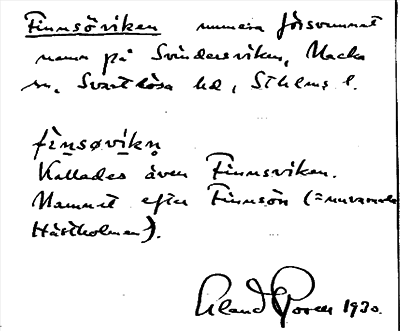 Finnsöviken numera försvunnet
namn på Svindersviken, Nacka
sn, Svartlösa hd, Sthlms l.
fìnsøvikn̥
Kallades även Finnsviken.
Namnet efter Finnsön (=nuvarande
Hästholmen).
Erland Rosell 1930.